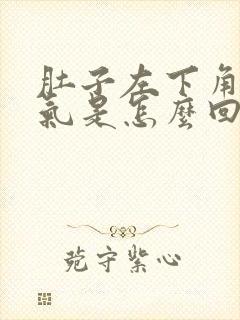 肚子左下角
氣是怎麼回
菀守紫心